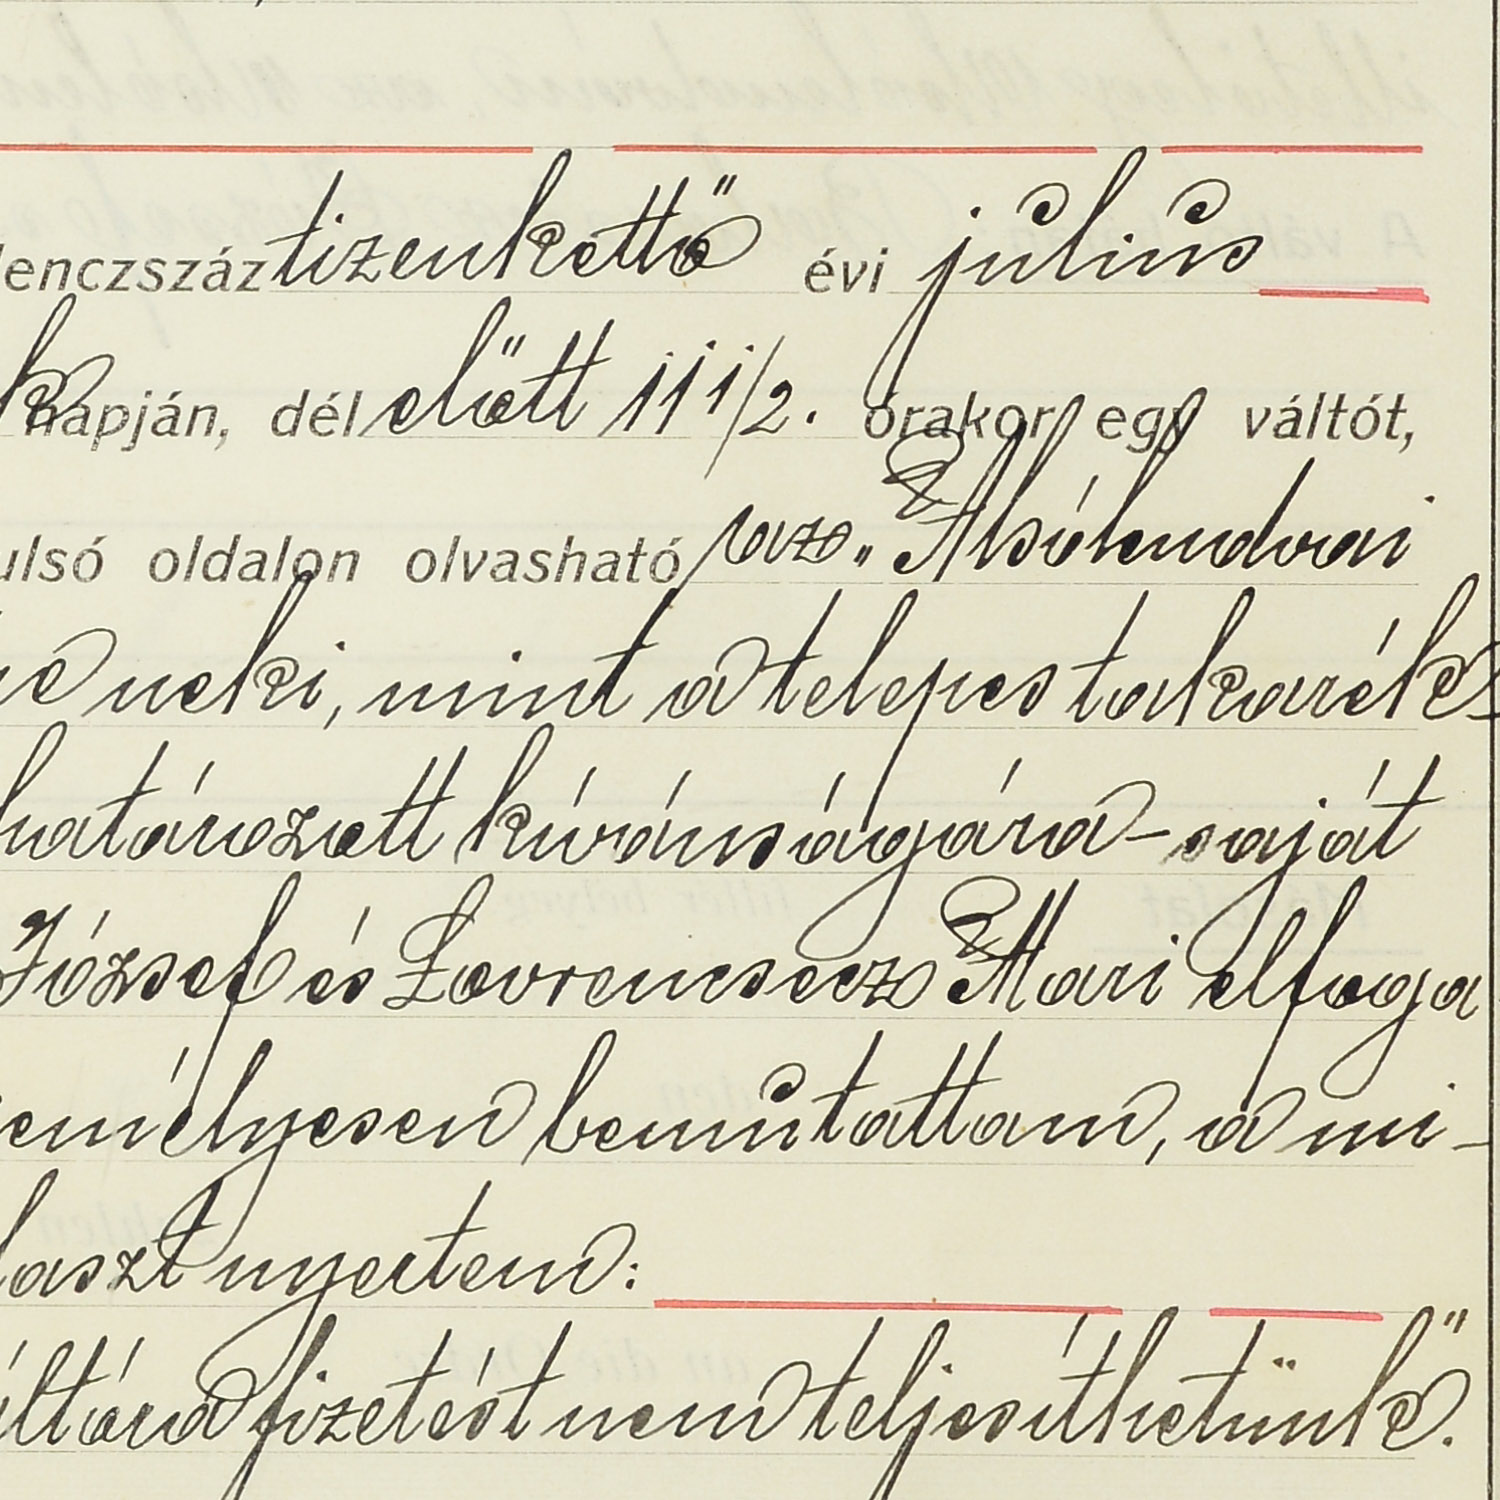 lenczszáz tizenkettő évi július
k napján, dél előtt 11 1/2. órakor egy váltót,
ulsó oldalon olvasható az „Alsólendvai
neki, mint a telepes takarék-
határozott kívánságára - saját
József és Lovrencsecz Mari elfoga
emélyesen bemutattam, a mi-
laszt nyertem:
áltára fizetést nem teljesíthetünk."